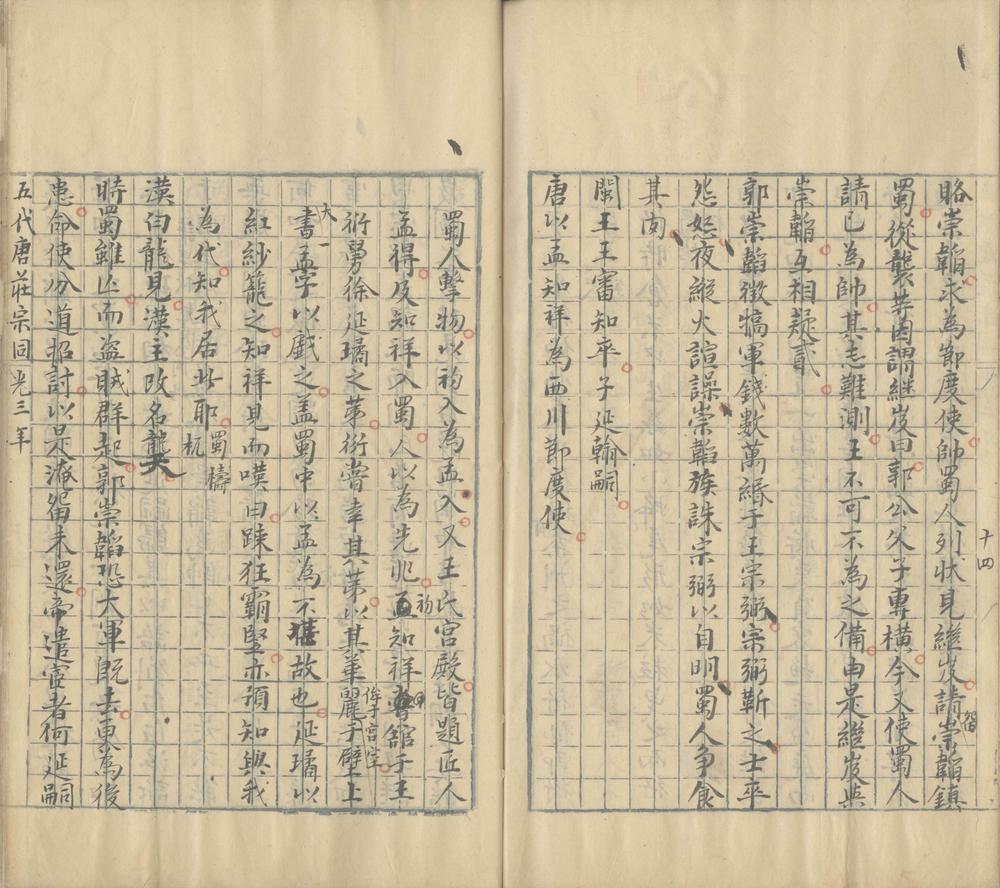 賂崇韜求為節度使帥蜀人列狀見繼岌請留崇韜鎮
蜀從襲等因謂繼岌曰郭公父子專橫今又使蜀人
請已為帥其志難測王不可不為之備由是繼岌與
崇韜互相疑貳
郭崇韜徵犒軍錢數萬緡于王宗弼宗弼靳之士卒
怨怒夜縱火諠譟崇韜族誅宗弼以自明蜀人爭食
其肉
閩王王審知卒子延翰嗣
唐以孟知祥為西川節度使
十四
蜀人擊物以礿入為孟入又王氏宮殿皆題匠人
孟得及知祥入蜀人以為先兆礿孟知祥館于王
衍舅徐延瓊之第衍嘗幸其第以其華麗于壁上
侔于宮室
大書一孟字以戲之蓋蜀中以孟為不佳故也延瓊以
紅紗籠之知祥見而嘆曰疎狂霸豎亦預知與我
為代知我居此耶蜀檮杌
漢白龍見漢主改名龑
時蜀雖亡而盜賊群起郭崇韜恐大軍既去更為後
患命使分道招討以是淹留未還帝遣宦者何延嗣
五代唐莊宗同光三年